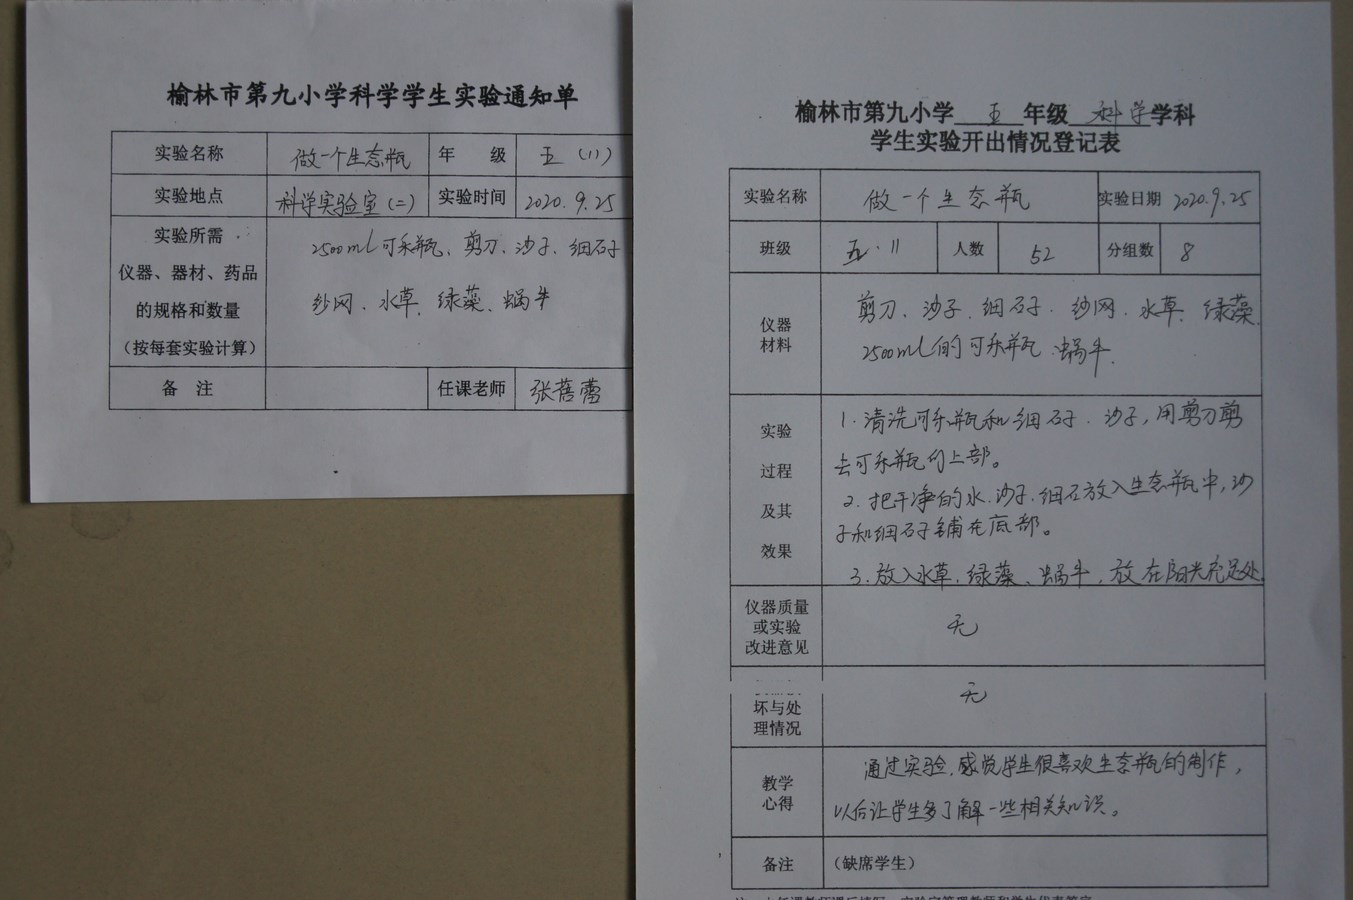 榆林市第九小学科学学生实验通知单
实验名称 做一个生态瓶 年 级 五（11）
实验地点 科学实验室（二） 实验时间 2020.9.25
实验所需
仪器、器材、药品
的规格和数量
（按每套实验计算）
2500ml可乐瓶、剪刀、沙子、细石子
纱网、水草、绿藻、蜗牛
备 注 任课老师 张蓓蕾
榆林市第九小学 五 年级 科学 学科
学生实验开出情况登记表
实验名称 做一个生态瓶 实验日期 2020.9.25
班级 五·11 人数 52 分组数 8
仪器
材料
剪刀、沙子、细石子、纱网、水草、绿藻、
2500ml的可乐瓶、蜗牛.
实验
过程
及其
效果
1.清洗可乐瓶和细石子、沙子,用剪刀剪
去可乐瓶的上部。
2.把干净的水、沙子、细石放入生态瓶中,沙
子和细石子铺在底部。
3.放入水草、绿藻、蜗牛,放在阳光充足处.
仪器质量
或实验
改进意见
无
坏与处
理情况
无
教学
心得
通过实验,感觉学生很喜欢生态瓶的制作,
以后让学生多了解一些相关知识。
备注 （缺席学生）